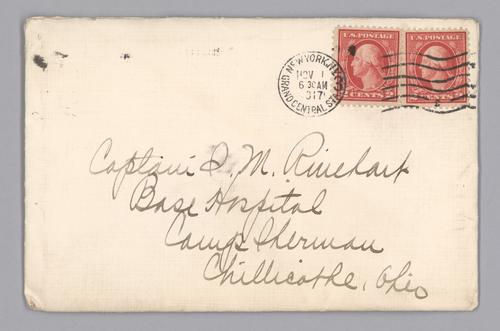 U.S. POSTAGE U.S. POSTAGE
NEW YORK, N.Y.
NOV 1
6 30 AM
1917
GRAND CENTRAL STA.
2 CENTS 2
CENTS 2
Captain I. M. Rinehart
Base Hospital
Camp Sherman
Chillicothe, Ohio